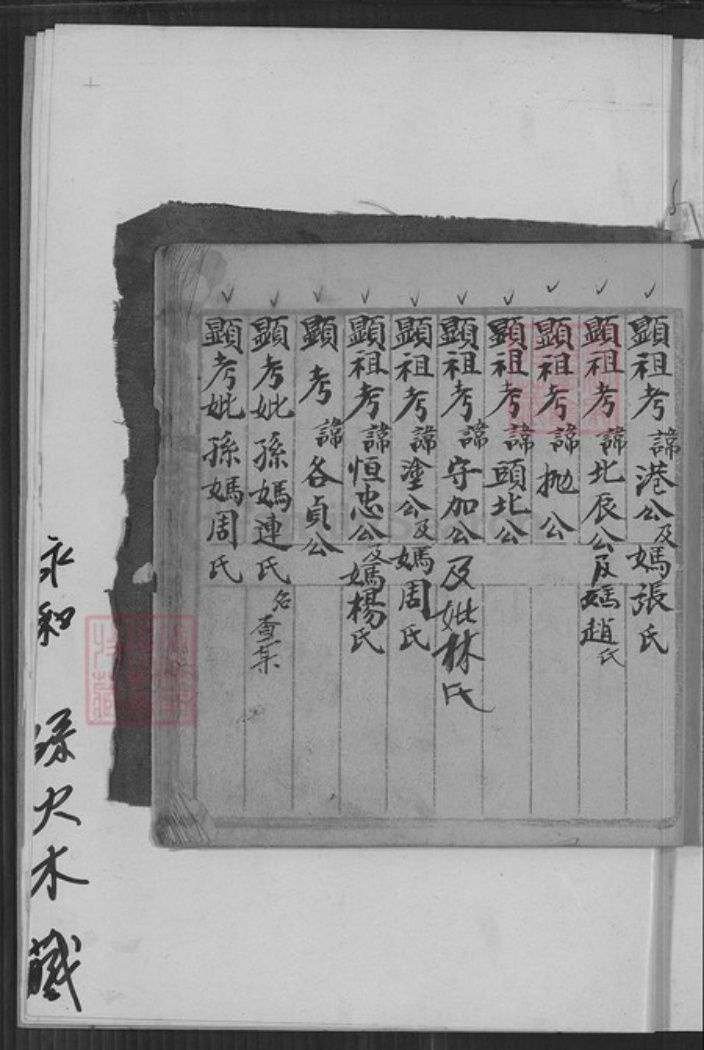 顯祖考諱港公及媽張氏
顯祖考諱北辰公及媽趙氏
顯祖考諱抛公
顯祖考諱頭北公
顯祖考諱守加公及妣林氏
顯祖考諱塗公及媽周氏
顯祖考諱恒忠公及媽楊氏
顯考諱各貞公
顯考妣孫媽連氏名查某
顯考妣孫媽周氏
永和 孫火木藏